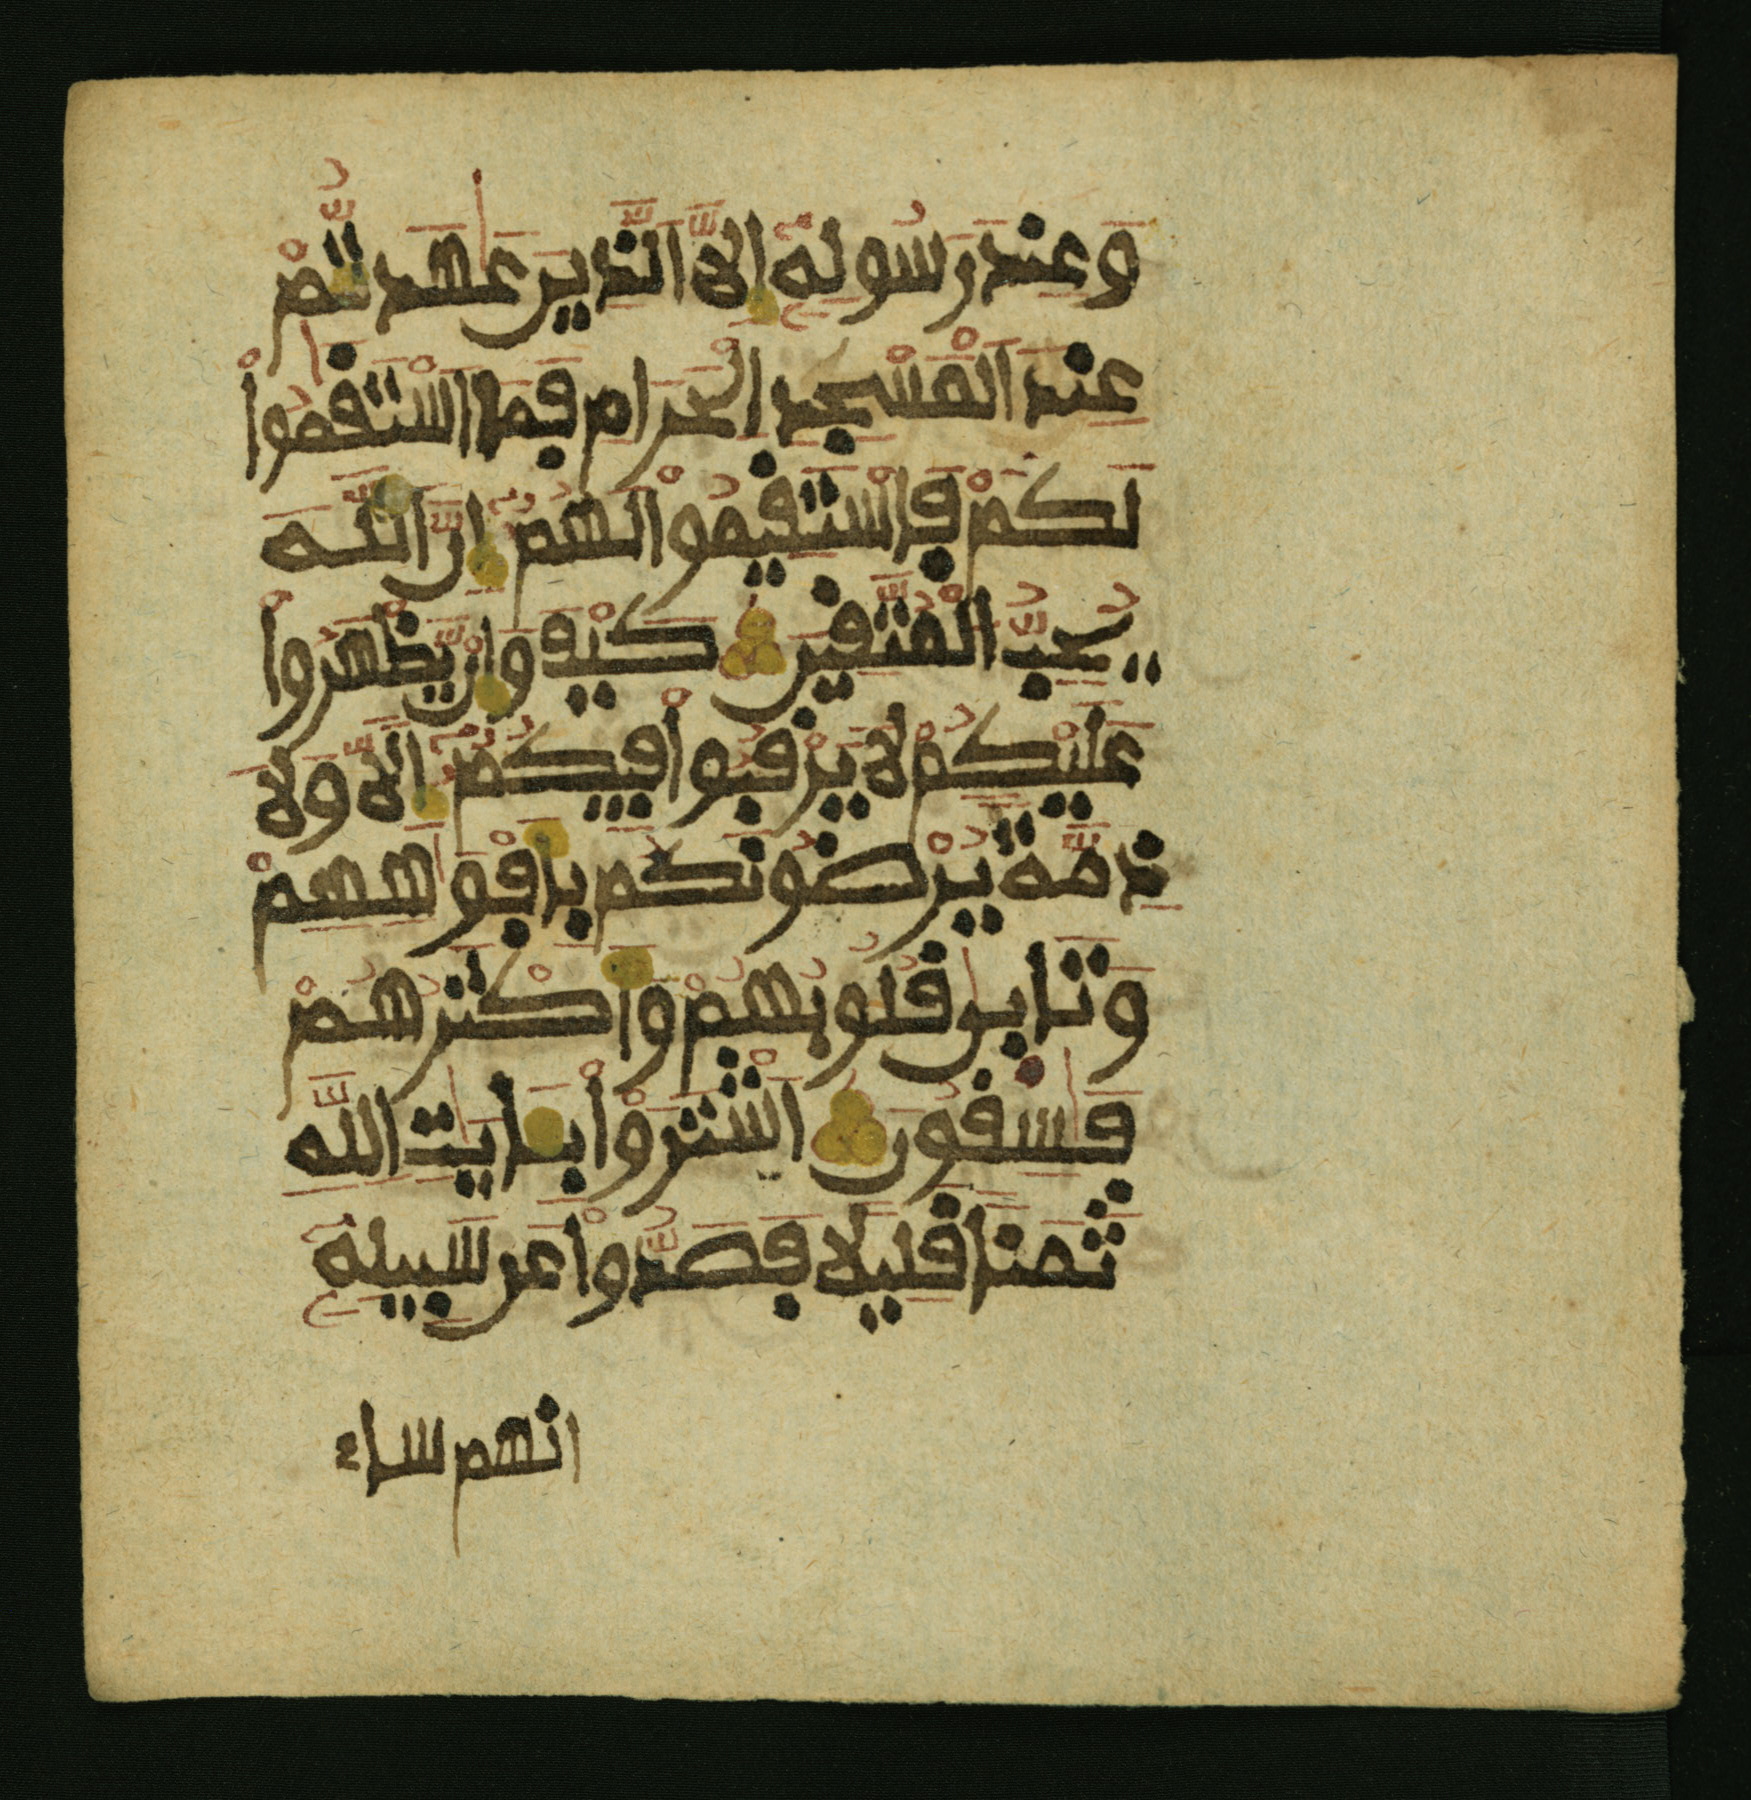 وَعِندَ رَسُولِهِۦٓ إِلَّا ٱلَّذِينَ عَٰهَدتُّمْ
عِندَ ٱلْمَسْجِدِ ٱلْحَرَامِ فَمَا ٱسْتَقَٰمُواْ
لَكُمْ فَٱسْتَقِيمُواْ لَهُمُۥٓ إِنَّ ٱللَّهَ
يُحِبُّ ٱلْمُتَّقِينَ كَيْفَ وَإِنْ يَّظْهَرُواْ
عَلَيْكُمْ لَا يَرْقُبُواْ فِيكُمُۥٓ إِلّاً وَلَا
ذِمَّةً يُرْضُونَكُم بِأَفْوَٰهِهِمْ
وَتَأْبَىٰ قُلُوبُهُمْ وَأَكْثَرُهُمْ
فَٰسِقُونَ ٱشْتَرَوْاْ بِـَٔايَٰتِ ٱللَّهِ
ثَمَناً قَلِيلًا فَصَدُّواْ عَن سَبِيلِهِۦٓ
انهم ساء